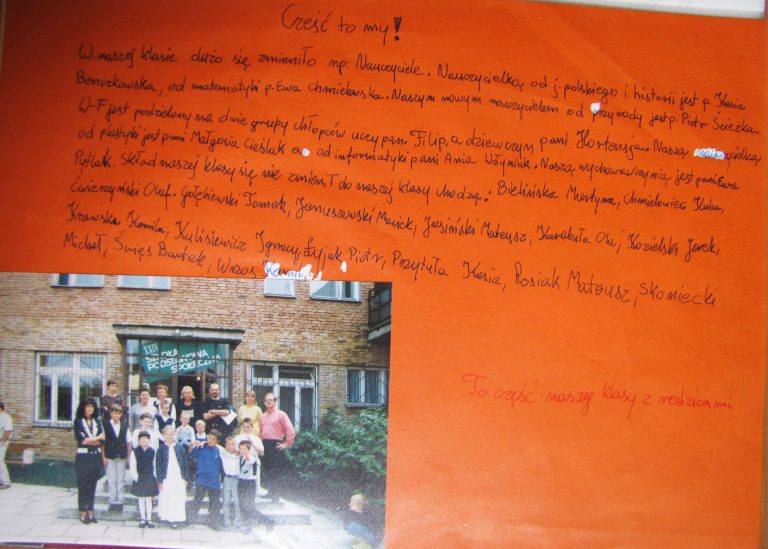 Cześć to my!
W naszej klasie dużo się zmieniło np: Nauczyciele. Nauczycielką od j. polskiego i historii jest p. Kasia
Benczkowska, od matematyki p. Ewa Chmielewska. Naszym nowym nauczycielem od przyrody jest p. Piotr Ścieżka.
W-F jest podzielony na dwie grupy chłopców uczy pan Filip, a dziewczyn pani Hortensja. Naszą
od plastyki jest pani Małgosia Cieślak a od informatyki pani Ania Wdyniak. Naszą wychowawczynią jest pani Ewa
Pytlak. Skład naszej klasy się nie zmienił do naszej klasy chodzą: Bielińska Martyna, Chmielowiec Kuba,
Ćwierzyński Olaf. Gołębiewski Tomek, Januszewski Maciek, Jasiński Mateusz, Karabuła Ola, Kozielski Jarek,
Krzewska Kamila, Kulisiewicz Ignacy, Łyjak Piotr, Przytuła Kasia, Rosiak Mateusz, Skoniecki
Michał, Święs Bartek, Wrzos Kamil.
XXIV
SZKOŁA
PODSTAWOWA
SPOŁECZNA
To część naszej klasy z rodzicami.